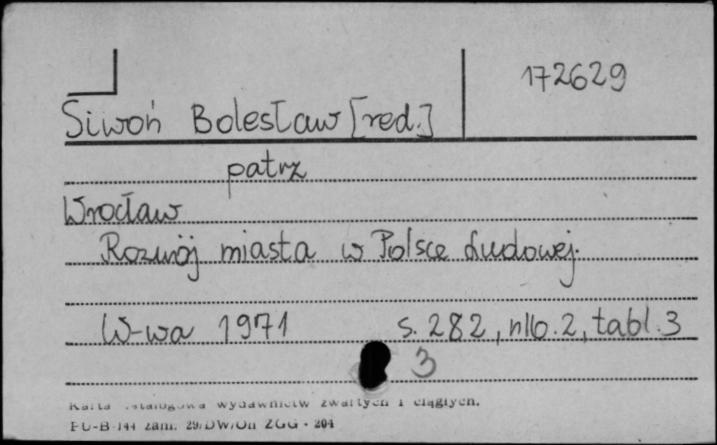 172629
Siwoń Bolesław [red.]
patrz
Wrocław
Rozwój miasta w Polsce Ludowej.
W-wa 1971 s. 282, nlb. 2, tabl. 3
3
Karta katalogowa wydawnictw zwartych i ciągłych.
PU-B-144 zam. 29/DW/On ZGG - 204